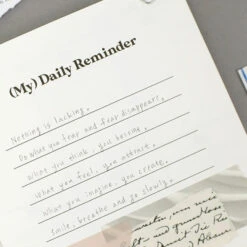 (My) Daily Reminder
Nothing is lacking.
Do what you fear and fear disappears.
What you think, you become.
What you feel, you attract.
What you imagine, you create.
Smile, breathe and go slowly.